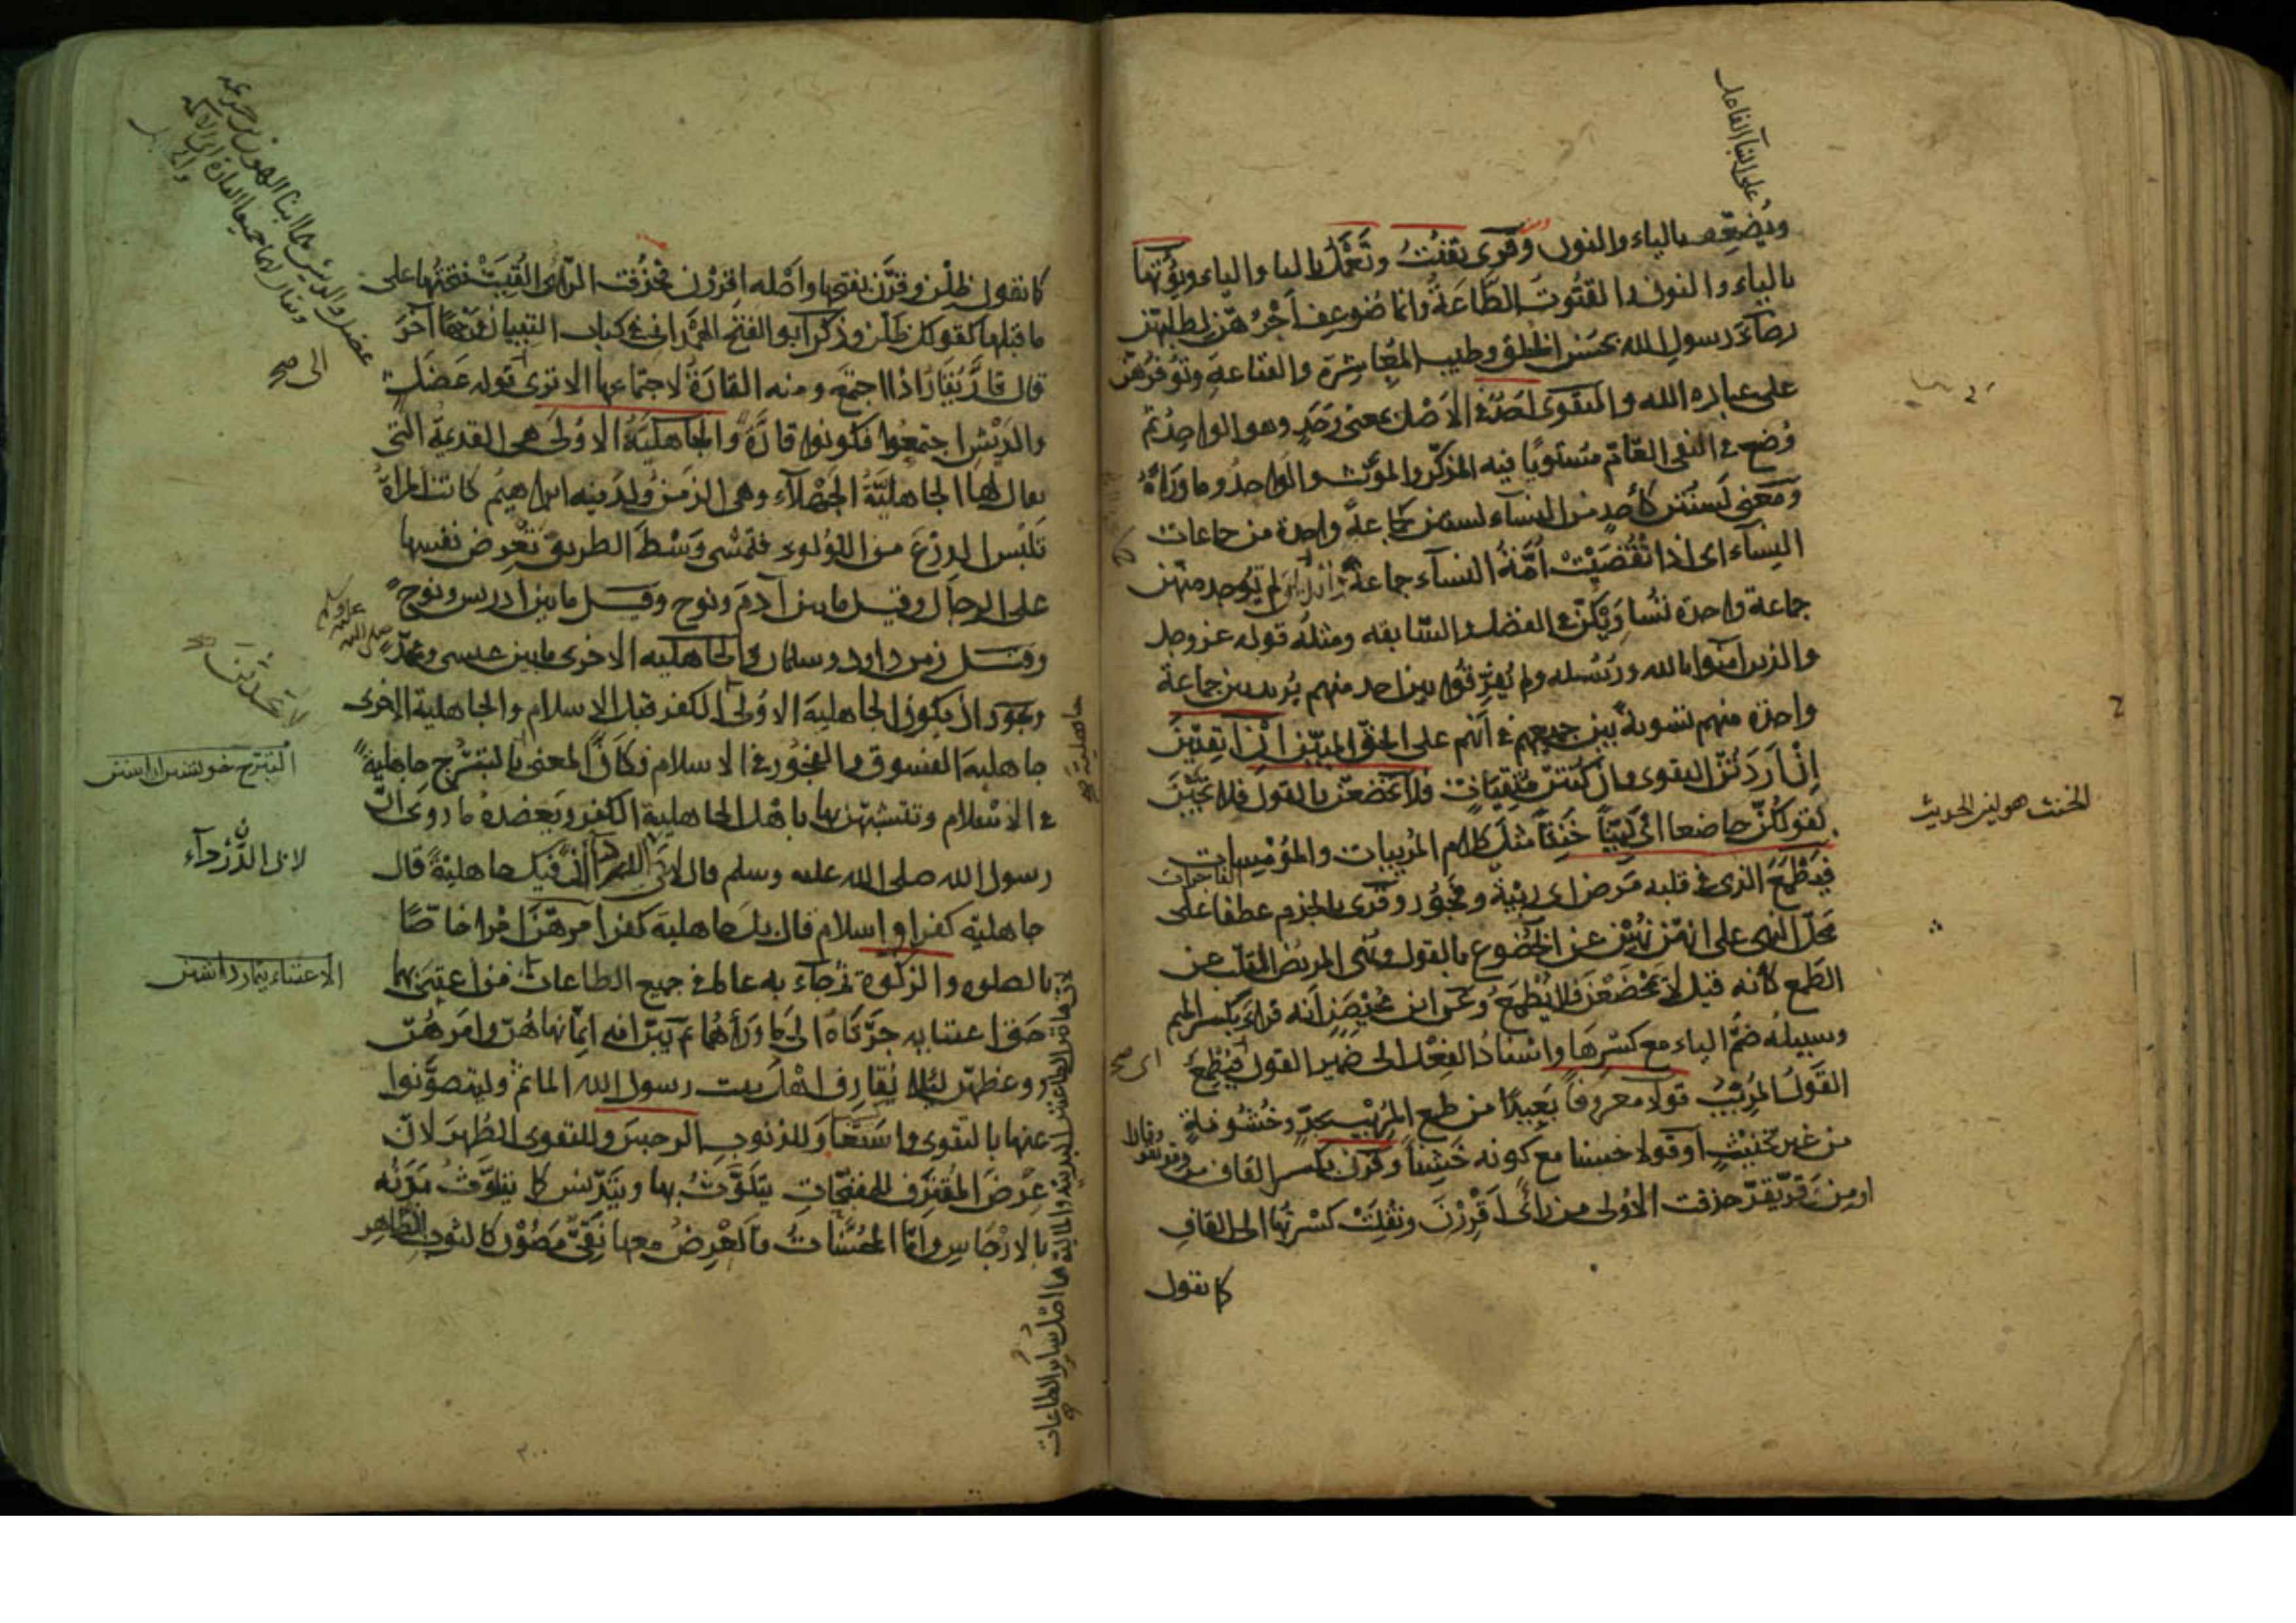 ويضعّف بالياء والنون وقرى تقنت وتعمل بالتا والياء ونؤتها
بالياء والنون والقنوت الطاعة وانما ضوعف اجرهنّ لطلبهنّ
رضاء رسول الله بحسن الخلق وطيب المعاشرة والقناعة وتوفرهنّ
على عبادة الله والتقوى احد في الاصل بمعنى وحد وهو الواحد ثم
وضع في النفى العام مستويا فيه المذكّر والمؤنث والواحد وما وراءه
ومعنى لستن كأحد من النساء لستن كجماعة واحدة من جماعات
النساء اى اذا تقصّيت امّة النساء جماعة جماعة لم توجد منهن
جماعة واحدة تساويكنّ في الفضل والسابقه ومثله قوله عز وجل
والذين آمنوا بالله ورسله ولم يفرّقوا بين احد منهم يريد بين جماعة
واحدة منهم تسوية بين جميعهم في انهم على الحق المبين ان اتقيتنّ
ان اردتنّ التقوى وان كنتنّ متّقيات فلا تخضعن بالقول فلا تجبن
بقولكنّ خاضعا اى ليّنا خنثا مثل كلام المريبات والمومسات
الفاجرات
فيطمع الذى في قلبه مرض اى ريبة وفجور وقرى بالجزم عطفا على
محلّ النهى على انهنّ نهين عن الخضوع بالقول ونهى المريض القلب عن
الطمع كانه قيل لا تخضعن فلا يطمع وعن ابن محيصن انه قرأ بكسر الميم
وسبيله ضمّ الياء مع كسرها واسناد الفعل الى ضمير القول اى فيطمع
القول المريب قولا معروفا بعيدا من طمع المريب بجدّ وخشونة
من غير تخنيث او قولا حسنا مع كونه خشنا وقرن بكسر القاف من وقر يقر وقارا
او من قرّ يقرّ حذفت الاولى من رائى اقررن ونقلت كسرتها الى القاف
كما تقول
على البنآ للفاعل
الخنث هو لين الحديث
كما تقول ظلن وقرن بفتحها واصله اقررن فحذفت الراء والقيت فتحتها على
ما قبلها كقولك ظلن وذكر ابو الفتح الهمدانى في كتاب التبيان وجها آخر
قال قار يقار اذا اجتمع ومنه القارة لاجتماعها الا ترى الى قوله عضل
والديش اجتمعوا فكونوا قارة والجاهلية الاولى هى القديمة التى
يقال لها الجاهلية الجهلاء وهى الزمن ولد فيه ابراهيم كانت المراة
تلبس الدرع من اللولؤ فتمشى وسط الطريق تعرض نفسها
على الرجال وقيل ما بين آدم ونوح وقيل ما بين ادريس ونوح
وقيل زمن داود وسليمان والجاهلية الاخرى ما بين عيسى ومحمد صلى الله عليه وسلم
ويجوز ان يكون الجاهلية الاولى الكفر قبل الاسلام والجاهلية الاخرى
جاهلية الفسوق والفجور في الاسلام وكان المعنى بالتبرّج جاهلية
في الاسلام وتتشبهن بها باهل الجاهلية الكفر ويعضده ما روى ان
رسول الله صلى الله عليه وسلم قال لابى الدردآ ان فيك جاهلية قال
جاهلية كفر او اسلام قال بل جاهلية كفر امرهنّ امرا خاصّا
بالصلوة والزكوة ثم جاء به عاما في جميع الطاعات فمن اعتنى بهما
حق اعتنايه جرّتاه الى ما وراءهما ثم بيّن انه انما نهاهنّ وامرهنّ
ووعظهنّ ليلا يقارف اهل بيت رسول الله الماثم وليتصوّنوا
عنها بالتقوى واستعار للذنوب الرجس وللتقوى الطهر لان
عرض المقترف للمقبّحات يتلوّث بها ويتدنّس كما يتلوّث بدنه
بالارجاس واما المحسّنات فالعرض معها نقىّ مصون كالثوب الطاهر
الى صح
جاهلية صح
التبرج خويشتن اراستن
لابى الدردآء
الاعتناء تيمار داشتن
لان هاتين الطاعتين البدنية والمالية هما اصل ساير الطاعات